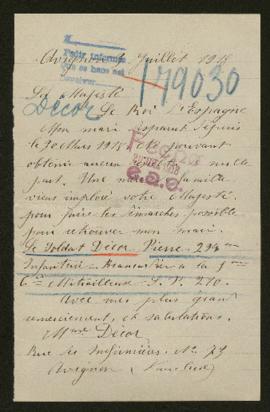 Avignon Juillet 1918
179030
Sa Majesté
Décor
Le Roi d'Espagne
Mon mari disparut depuis
le 30 Mars 1918 et ne pouvant
obtenir aucun nulle
part. Une famille
vient implorer votre Majesté
pour faire les démarches possible
pour retrouver mon mari.
Le Soldat Décor Pierre. 294me
Infanterie à la 5me
Cie Mitrailleuse S. P. 270.
Avec mes plus grand
remerciement, et salutations.
Mme Décor
Rue des Infirmières. No 79
Avignon (Vaucluse)